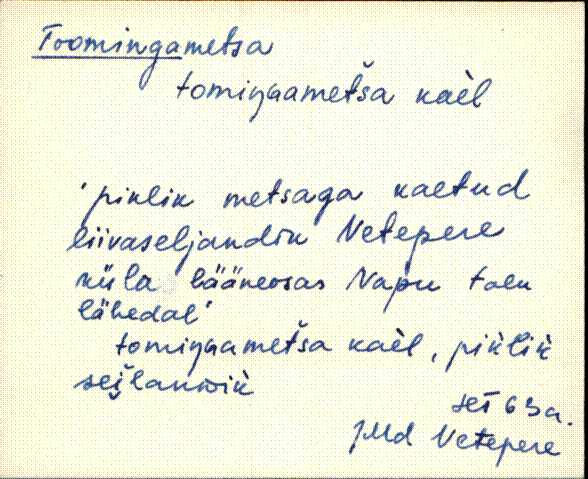 Toomingametsa
tomiŋgametša kaèl
'piklik metsaga kaetud
liivaseljandik Vetepere
küla lääneosas Napu talu
lähedal'
tomiŋgametša kaèl, piklik
63a.
JMd Vetepere